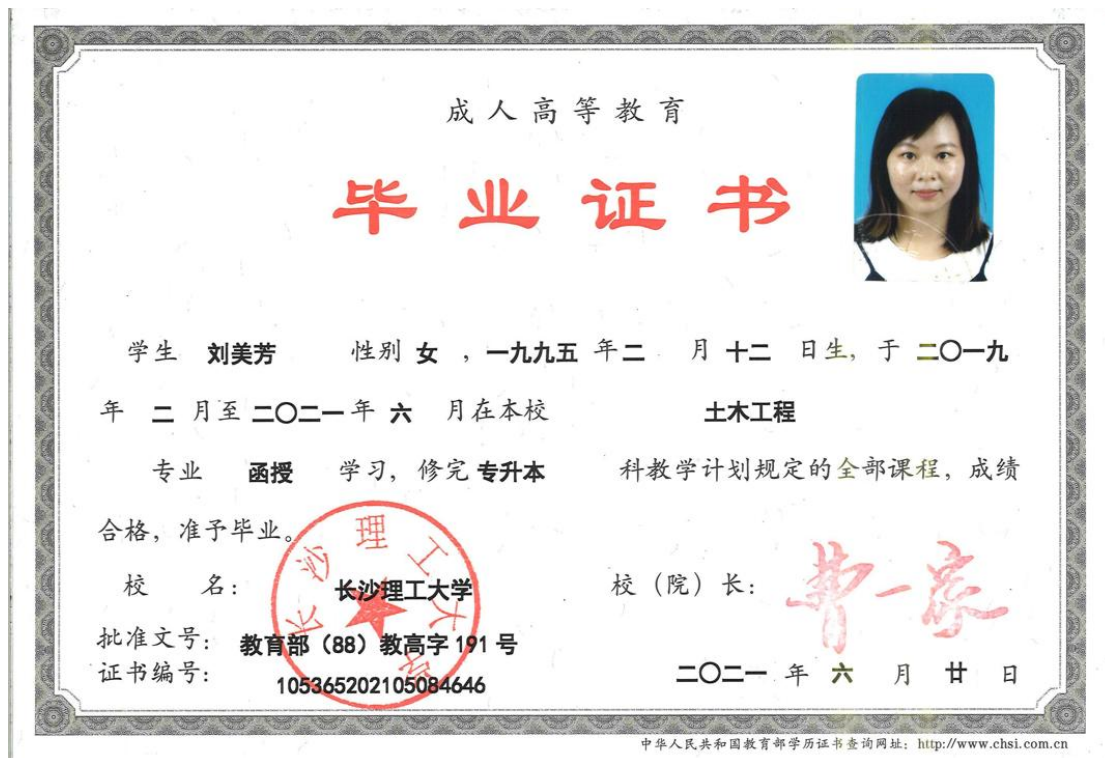 成人高等教育
毕业证书
学生 刘美芳 性别 女 ，一九九五 年二 月 十二 日生，于 二〇一九
年 二 月至 二〇二一 年 六 月在本校 土木工程
专业 函授 学习，修完 专升本 科教学计划规定的全部课程，成绩
合格，准予毕业。
长沙理工大学
校 名： 长沙理工大学 校（院）长： 曹一家
批准文号： 教育部（88）教高字 191 号
证书编号： 105365202105084646 二〇二一 年 六 月 廿 日
中华人民共和国教育部学历证书查询网址：http://www.chsi.com.cn